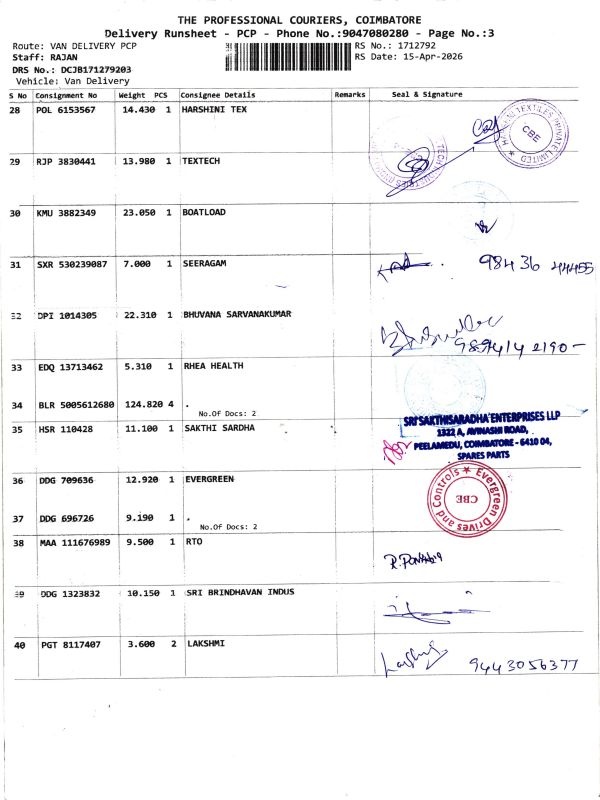 THE PROFESSIONAL COURIERS, COIMBATORE
Delivery Runsheet - PCP - Phone No.:9047080280 - Page No.:3
Route: VAN DELIVERY PCP
RS No.: 1712792
Staff: RAJAN
RS Date: 15-Apr-2026
DRS No.: DCJB171279203
Vehicle: Van Delivery
S No Consignment No Weight PCS Consignee Details Remarks Seal & Signature
28 POL 6153567 14.430 1 HARSHINI TEX
CBE
29 RJP 3830441 13.980 1 TEXTECH
30 KMU 3882349 23.050 1 BOATLOAD
31 SXR 530239087 7.000 1 SEERAGAM 98436 44455
32 DPI 1014305 22.310 1 BHUVANA SARVANAKUMAR
9894142190-
33 EDQ 13713462 5.310 1 RHEA HEALTH
34 BLR 5005612680 124.820 4 .
No.Of Docs: 2
35 HSR 110428 11.100 1 SAKTHI SARDHA
SRI SAKTHISARADHA ENTERPRISES LLP
1322 A, AVINASHI ROAD,
PEELAMEDU, COIMBATORE - 6410 04,
SPARES PARTS
36 DDG 709636 12.920 1 EVERGREEN
Evergreen Drives and Controls
CBE
37 DDG 696726 9.190 1 .
No.Of Docs: 2
38 MAA 111676989 9.500 1 RTO
39 DDG 1323832 10.150 1 SRI BRINDHAVAN INDUS
40 PGT 8117407 3.600 2 LAKSHMI
9443056377